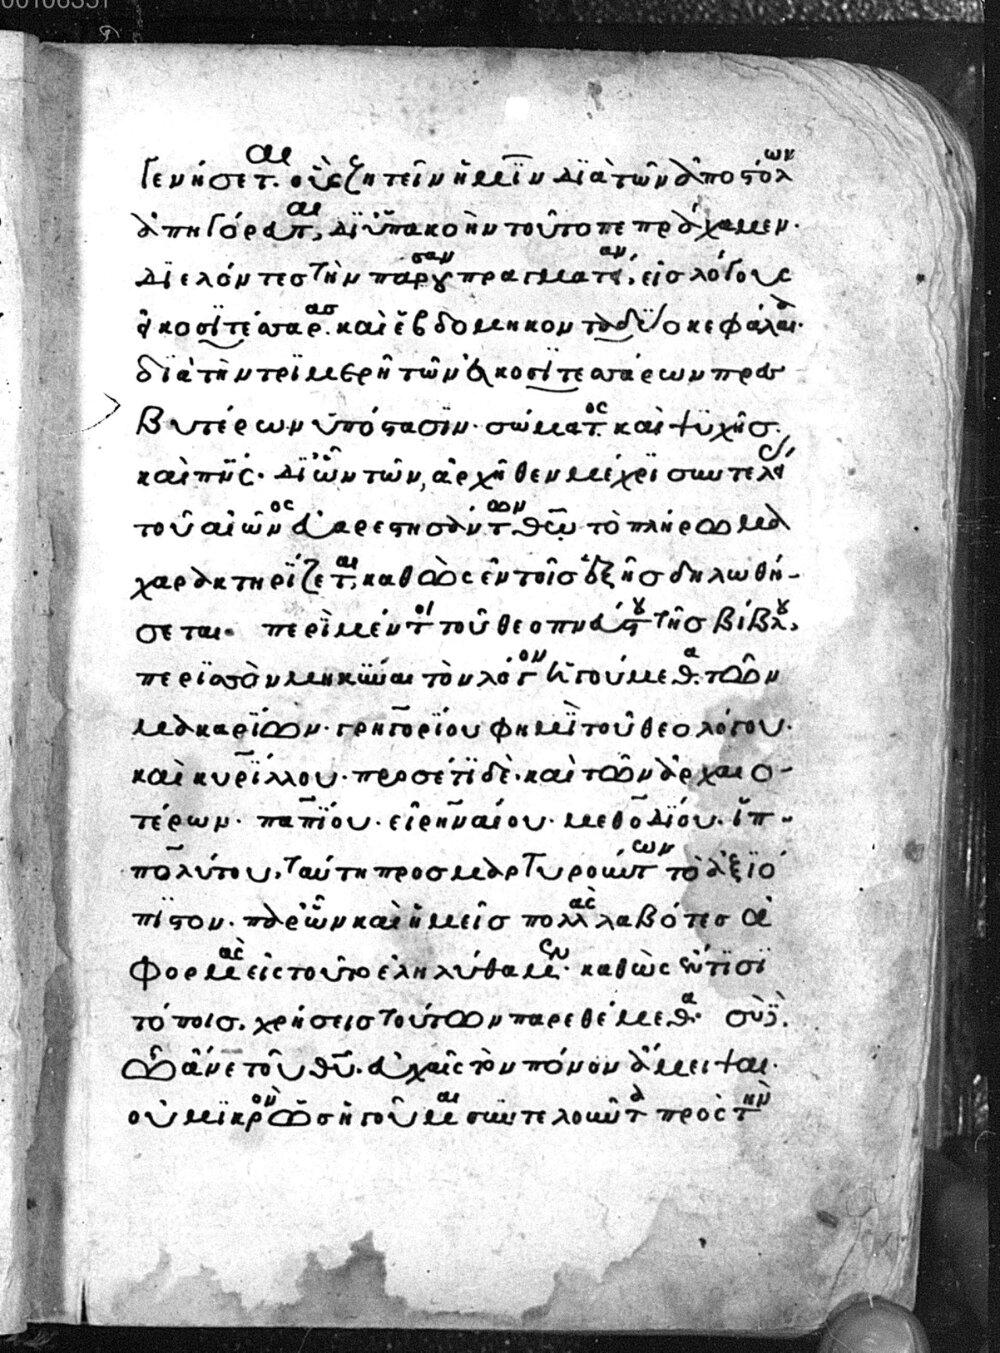 γενήσεται. οὓς ζητεῖν ἡμῖν διὰ τῶν ἀποστόλων
ἀπηγόρευται, δι' ὑπακοὴν τοῦτο πεπράχαμεν·
διελόντες τὴν παροῦσαν πραγματείαν, εἰς λόγους
εἰκοσιτέσσαρας. καὶ ἑβδομηκονταδύο κεφάλαια·
διὰ τὴν τριμερῆ τῶν εἰκοσιτεσσάρων πρεσ
βυτέρων ὑπόστασιν· σώματος καὶ ψυχῆς.
καὶ πν̅ς· δι' ὧν τῶν, ἀρχῆθεν μέχρι συντελείας
τοῦ αἰῶνος εὐαρεστησάντων θω̅ τὸ πλήρωμα
χαρακτηρίζεται, καθὼς ἐν τοῖς ἑξῆς δηλωθή-
σεται. περὶ μέντοι τοῦ θεοπνεύστου τῆς βίβλου,
περισσὸν μηκύναι τὸν λόγον ἡγούμεθα. τῶν
μακαρίων· γρηγορίου φημὶ τοῦ θεολόγου·
καὶ κυρίλλου· προσέτι δὲ· καὶ τῶν ἀρχαιο-
τέρων· παππίου· εἰρηναίου· μεθοδίου. ἱπ-
πολύτου, ταύτη προσμαρτυρούντων τὸ ἀξιό
πιστον· παρ' ὧν καὶ ἡμεῖς πολλὰς λαβότες ἀ
φορμὰς εἰς τοῦτο ἐληλύθαμεν· καθὼς ἔν τισι
τόποις. χρήσεις τούτων παρεθέμεθα· σὺ δὲ.
ὦ ἄνε τοῦ θυ̅. εὐχαῖς τὸν πόνον ἄμειψαι·
οὐ μικρὸν ὡς ἡγοῦμαι συντελοῦντα πρὸς τὴν